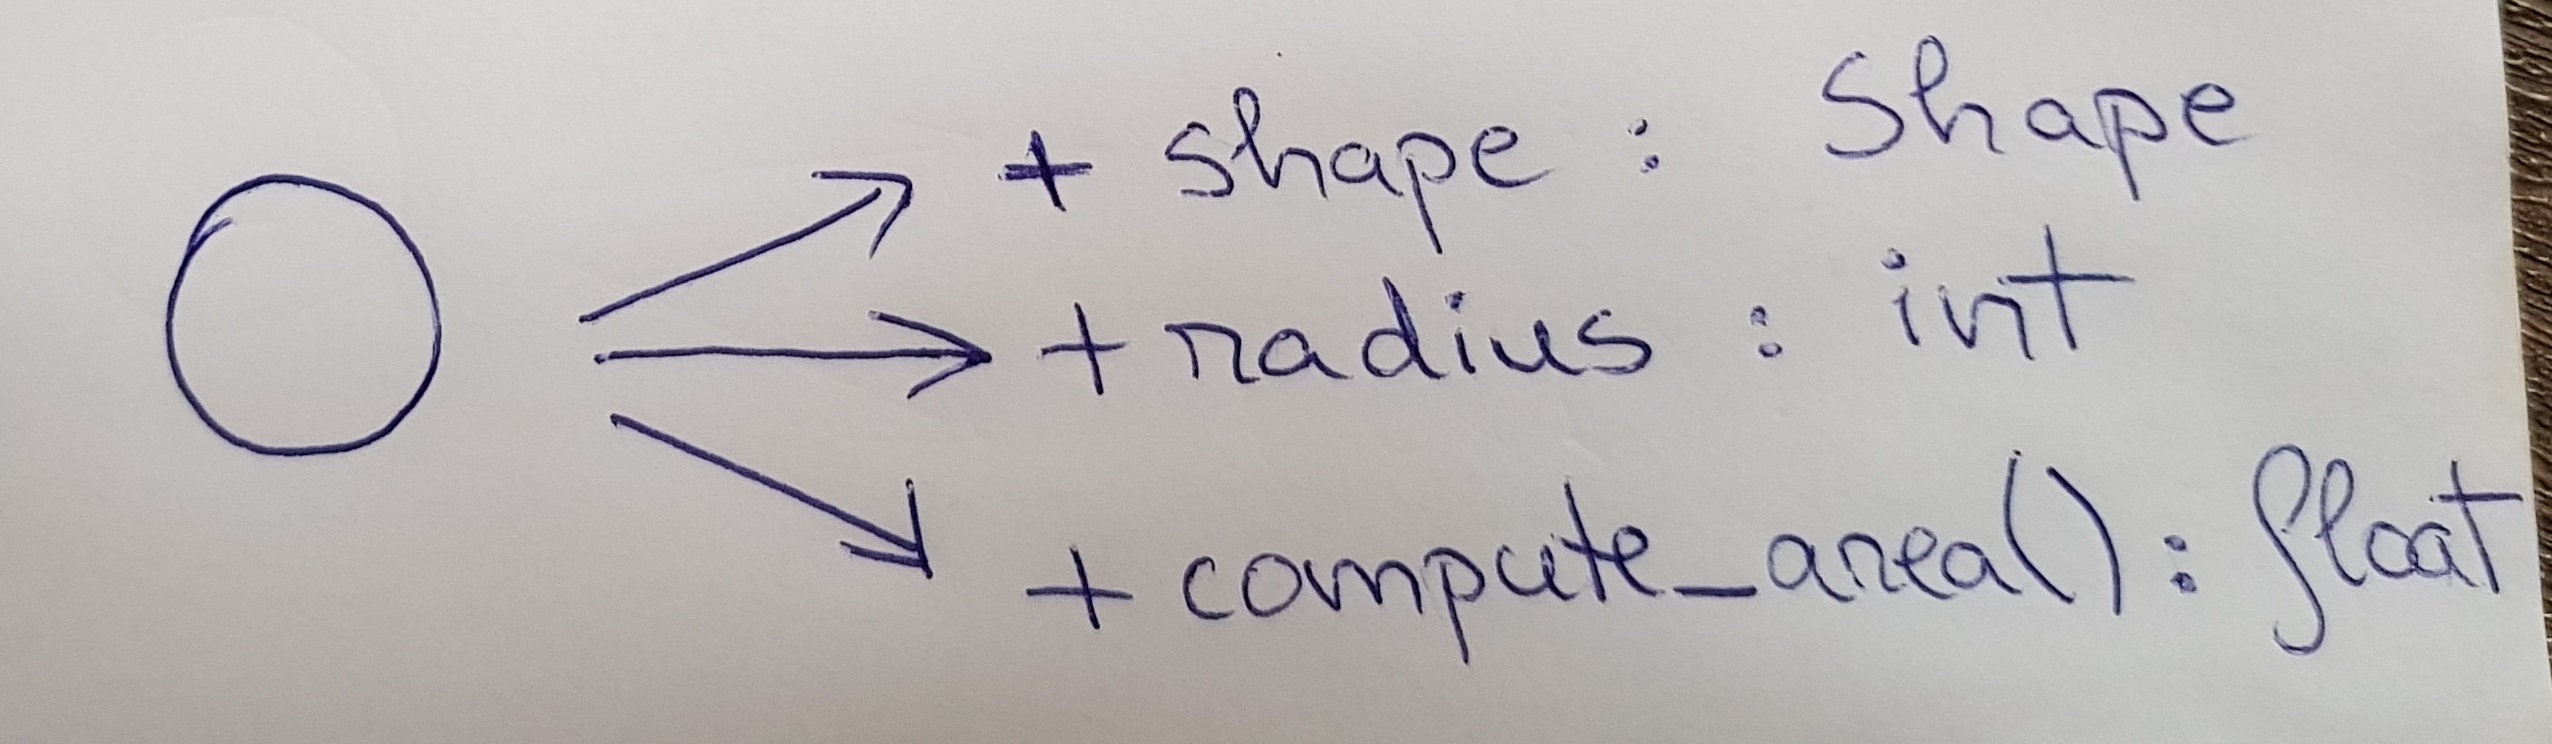 + shape : Shape
+ radius : int
+ compute_area() : float